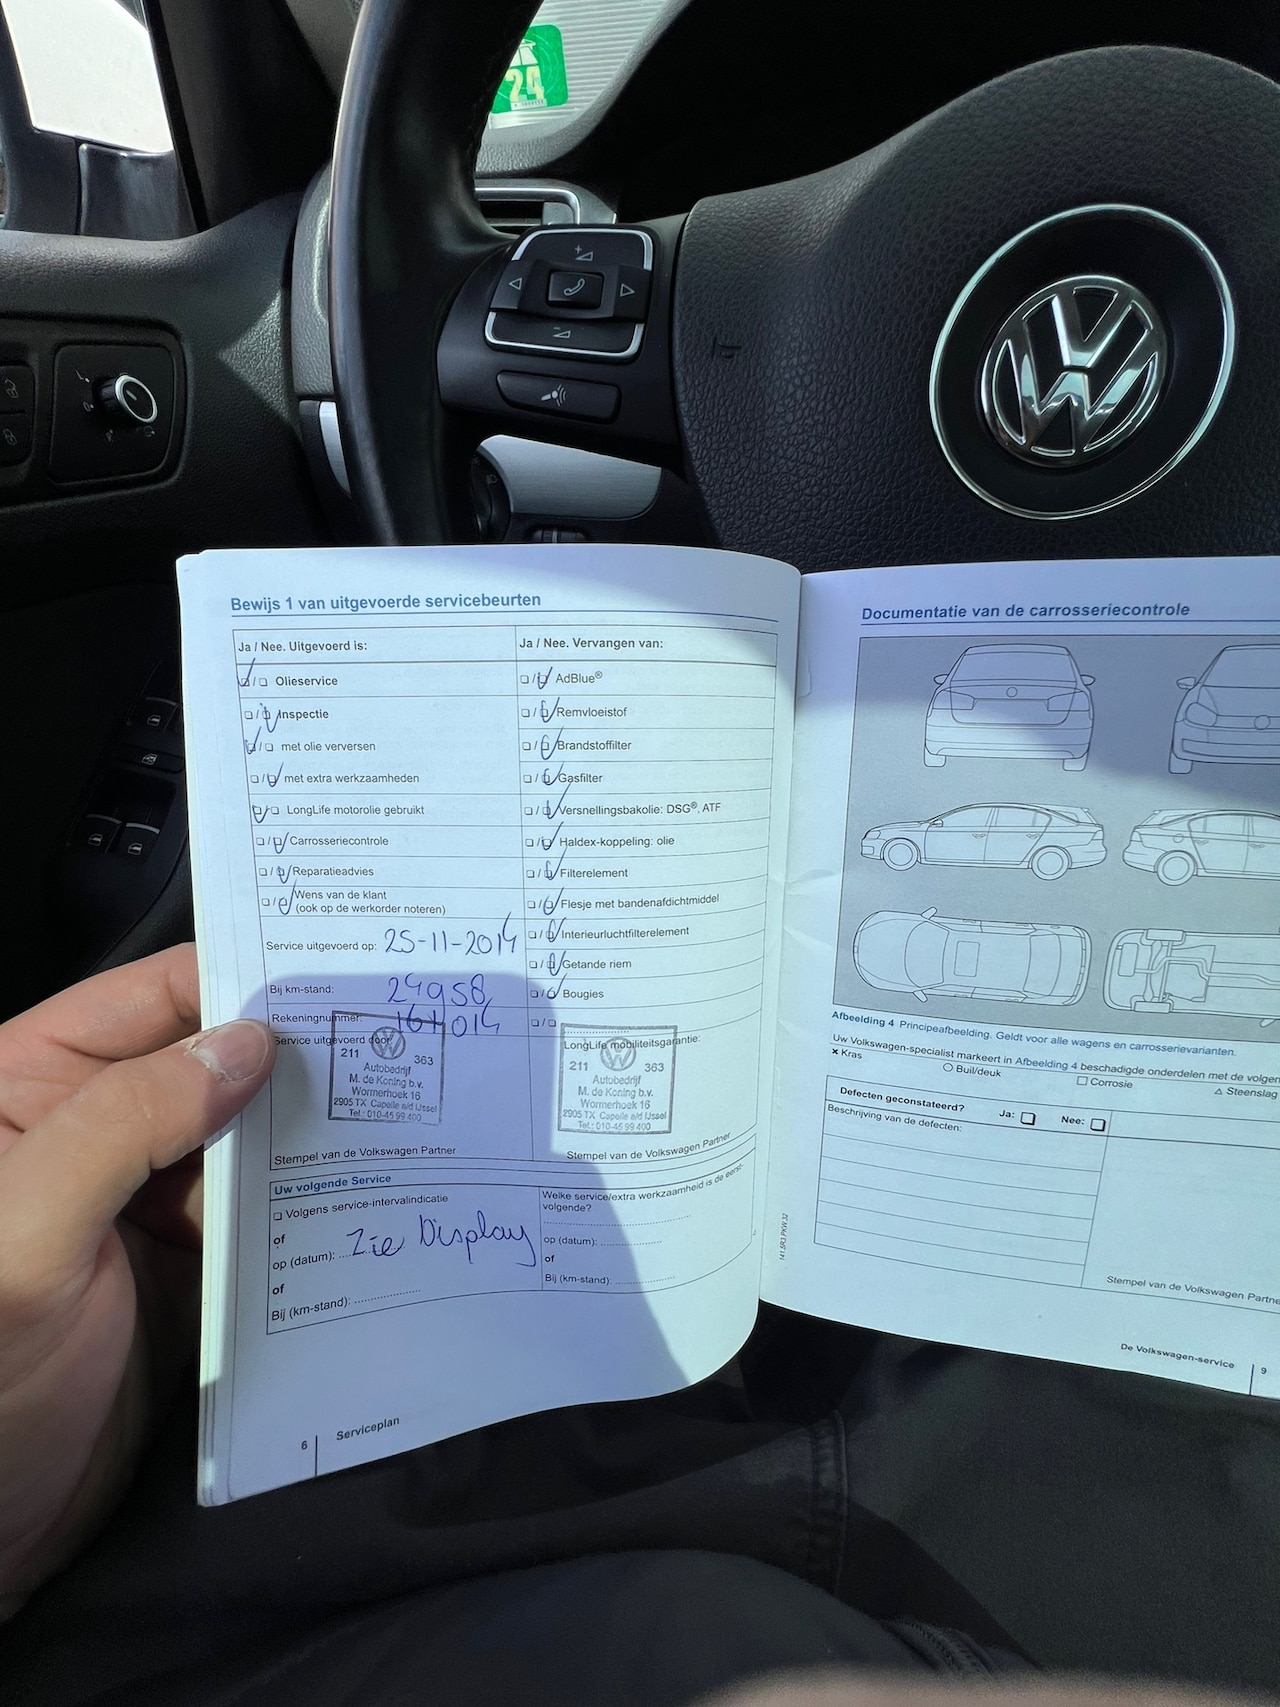 24
Bewijs 1 van uitgevoerde servicebeurten
Ja / Nee. Uitgevoerd is:
Olieservice
Inspectie
met olie verversen
met extra werkzaamheden
LongLife motorolie gebruikt
Carrosseriecontrole
Reparatieadvies
Wens van de klant
(ook op de werkorder noteren)
Service uitgevoerd op: 25-11-2014
Bij km-stand: 29958
Rekeningnummer:
Service uitgevoerd door:
211 363
Autobedrijf
M. de Koning b.v.
Wormerhoek 16
2905 TX Capelle a/d IJssel
Tel.: 010-45 99 400
Stempel van de Volkswagen Partner
Ja / Nee. Vervangen van:
AdBlue®
Remvloeistof
Brandstoffilter
Gasfilter
Versnellingsbakolie: DSG®, ATF
Haldex-koppeling: olie
Filterelement
Flesje met bandenafdichtmiddel
Interieurluchtfilterelement
Getande riem
Bougies
LongLife mobiliteitsgarantie:
211 363
Autobedrijf
M. de Koning b.v.
Wormerhoek 16
2905 TX Capelle a/d IJssel
Tel.: 010-45 99 400
Stempel van de Volkswagen Partner
Uw volgende Service
Volgens service-intervalindicatie
of
op (datum): Zie Display
of
Bij (km-stand):
Welke service/extra werkzaamheid is de eerst-
volgende?
op (datum):
of
Bij (km-stand):
6 Serviceplan
Documentatie van de carrosseriecontrole
Afbeelding 4 Principeafbeelding. Geldt voor alle wagens en carrosserievarianten.
Uw Volkswagen-specialist markeert in Afbeelding 4 beschadigde onderdelen met de volgen
× Kras
○ Buil/deuk
□ Corrosie
△ Steenslag
Defecten geconstateerd? Ja: Nee:
Beschrijving van de defecten:
Stempel van de Volkswagen Partne
141.5R3.PKW.32
De Volkswagen-service 9